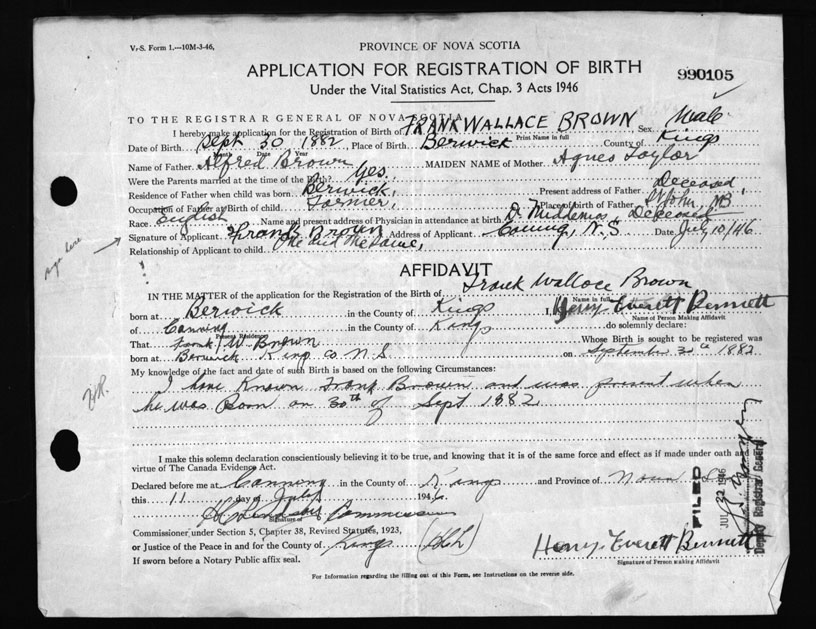 V.S. Form 1.—10M-3-46,
PROVINCE OF NOVA SCOTIA
APPLICATION FOR REGISTRATION OF BIRTH
990105
Under the Vital Statistics Act, Chap. 3 Acts 1946
TO THE REGISTRAR GENERAL OF NOVA SCOTIA
I hereby make application for the Registration of Birth of FRANK WALLACE BROWN Sex Male
Print Name in Full
Date of Birth Sept 30 1882 Place of Birth Berwick County of Kings
Month Date Year
Name of Father Alfred Brown MAIDEN NAME of Mother Agnes Taylor
Were the Parents married at the time of the Birth? Yes.
Residence of Father when child was born Berwick, Present address of Father Deceased
Occupation of Father at Birth of child Farmer, Place of birth of Father St John, NB
Race English Name and present address of Physician in attendance at birth Dr Middlemas, Deceased
Signature of Applicant Frank Brown Address of Applicant Canning, N.S Date July 10/46
sign here
Relationship of Applicant to child One and the Same,
AFFIDAVIT
IN THE MATTER of the application for the Registration of Birth of Frank Wallace Brown
Name in full
born at Berwick in the County of Kings I, Henry Everett Bennett
Name of Person Making Affidavit
of Canning in the County of Kings do solemnly declare:
Present Residence
That Frank W Brown Whose Birth is sought to be registered was
born at Berwick King Co N.S on September 30 1882
My knowledge of the fact and date of such Birth is based on the following Circumstances:
I have Known Frank Brown and was present when
he was Born on 30th of Sept 1882
I make this solemn declaration conscientiously believing it to be true, and knowing that it is of the same force and effect as if made under oath and
virtue of The Canada Evidence Act.
Declared before me at Canning in the County of Kings and Province of Nova
this 11 day of July 1946
Commissioner
Signature of
Commissioner under Section 5, Chapter 38, Revised Statutes, 1923,
or Justice of the Peace in and for the County of Kings
Henry Everett Bennett
Signature of Person Making Affidavit
If sworn before a Notary Public affix seal.
For Information regarding the filling out of this Form, see Instructions on the reverse side.
FILED
JUL 22 1946
Deputy Registrar General